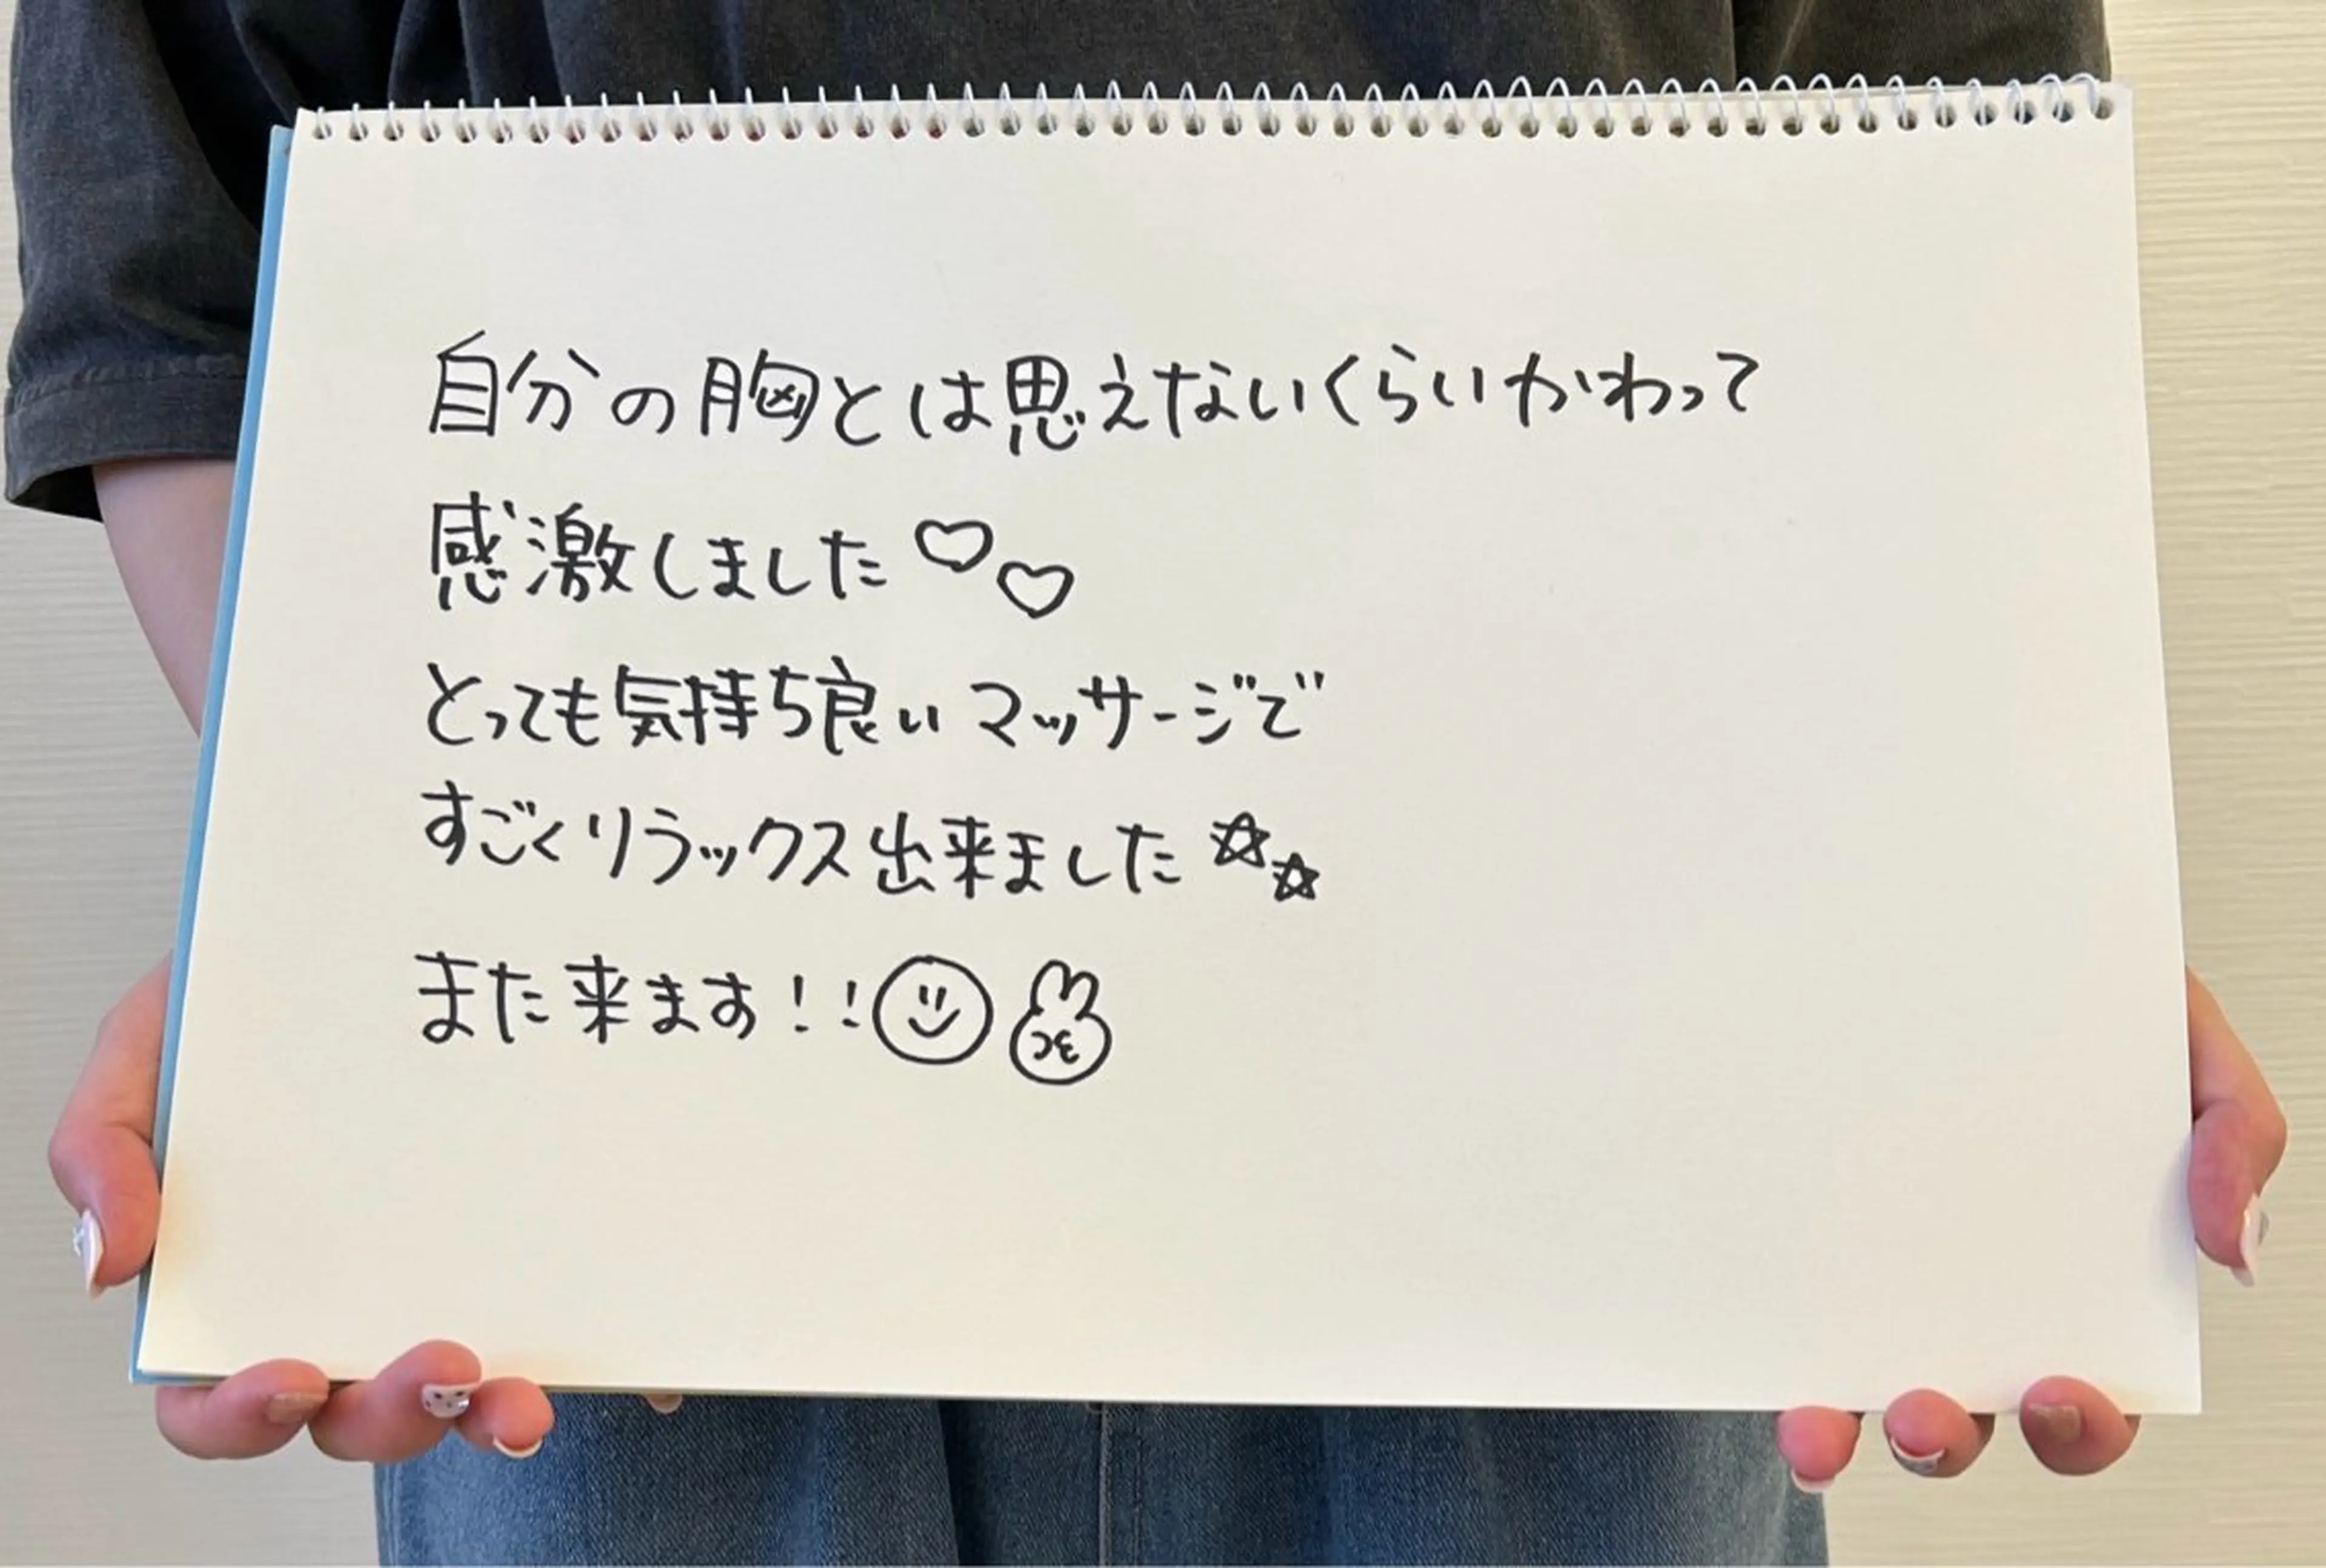 自分の胸とは思えないくらいかわって
感激しました♡♡
とっても気持ち良いマッサージで
すごくリラックス出来ました☆☆
また来ます!!